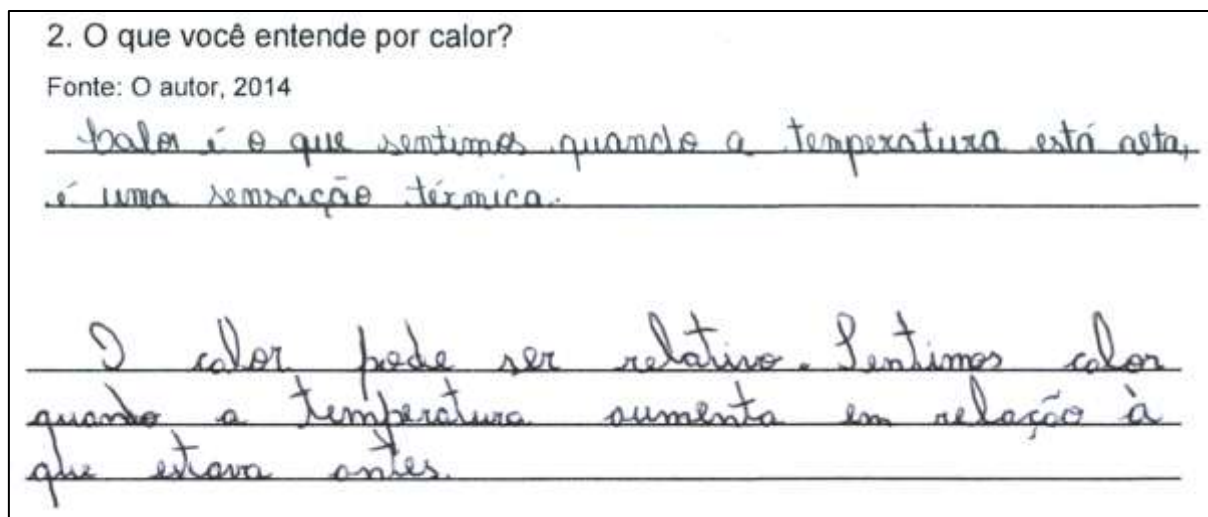 2. O que você entende por calor?
Fonte: O autor, 2014
Calor é o que sentimos quando a temperatura está alta,
é uma sensação térmica.
O calor pode ser relativo. Sentimos calor
quando a temperatura aumenta em relação à
que estava antes.